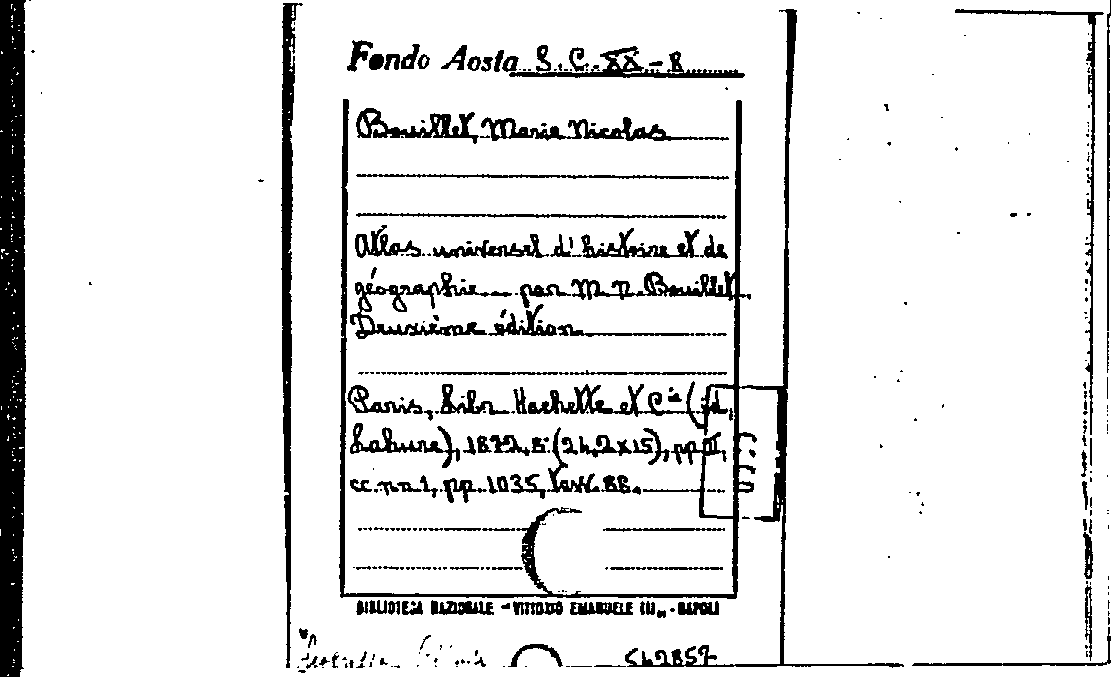 Fondo Aosta S.C. XX - B
Bouillet, Marie Nicolas
Atlas universel d'histoire et de
géographie... par M. N. Bouillet.
Deuxième édition.
Paris, Libr Hachette et Cie (id,
Lahure), 1872, 8° (24,2x15), pp II,
cc. nn 1, pp. 1035, tavv. 88.
BIBLIOTECA NAZIONALE - VITTORIO EMANUELE III„ - NAPOLI
542857